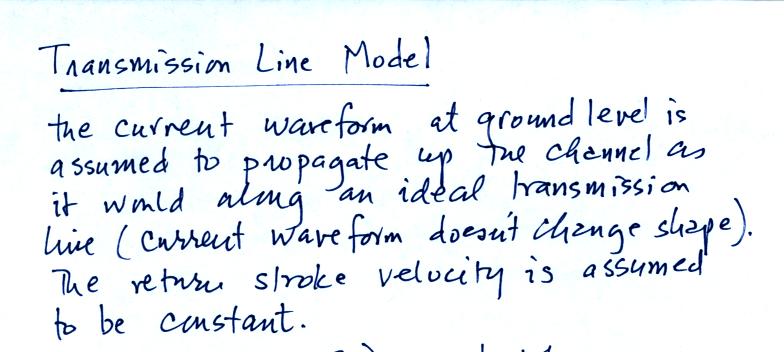 Transmission Line Model
the current waveform at ground level is
assumed to propagate up the channel as
it would along an ideal transmission
line (current waveform doesn't change shape).
The return stroke velocity is assumed
to be constant.